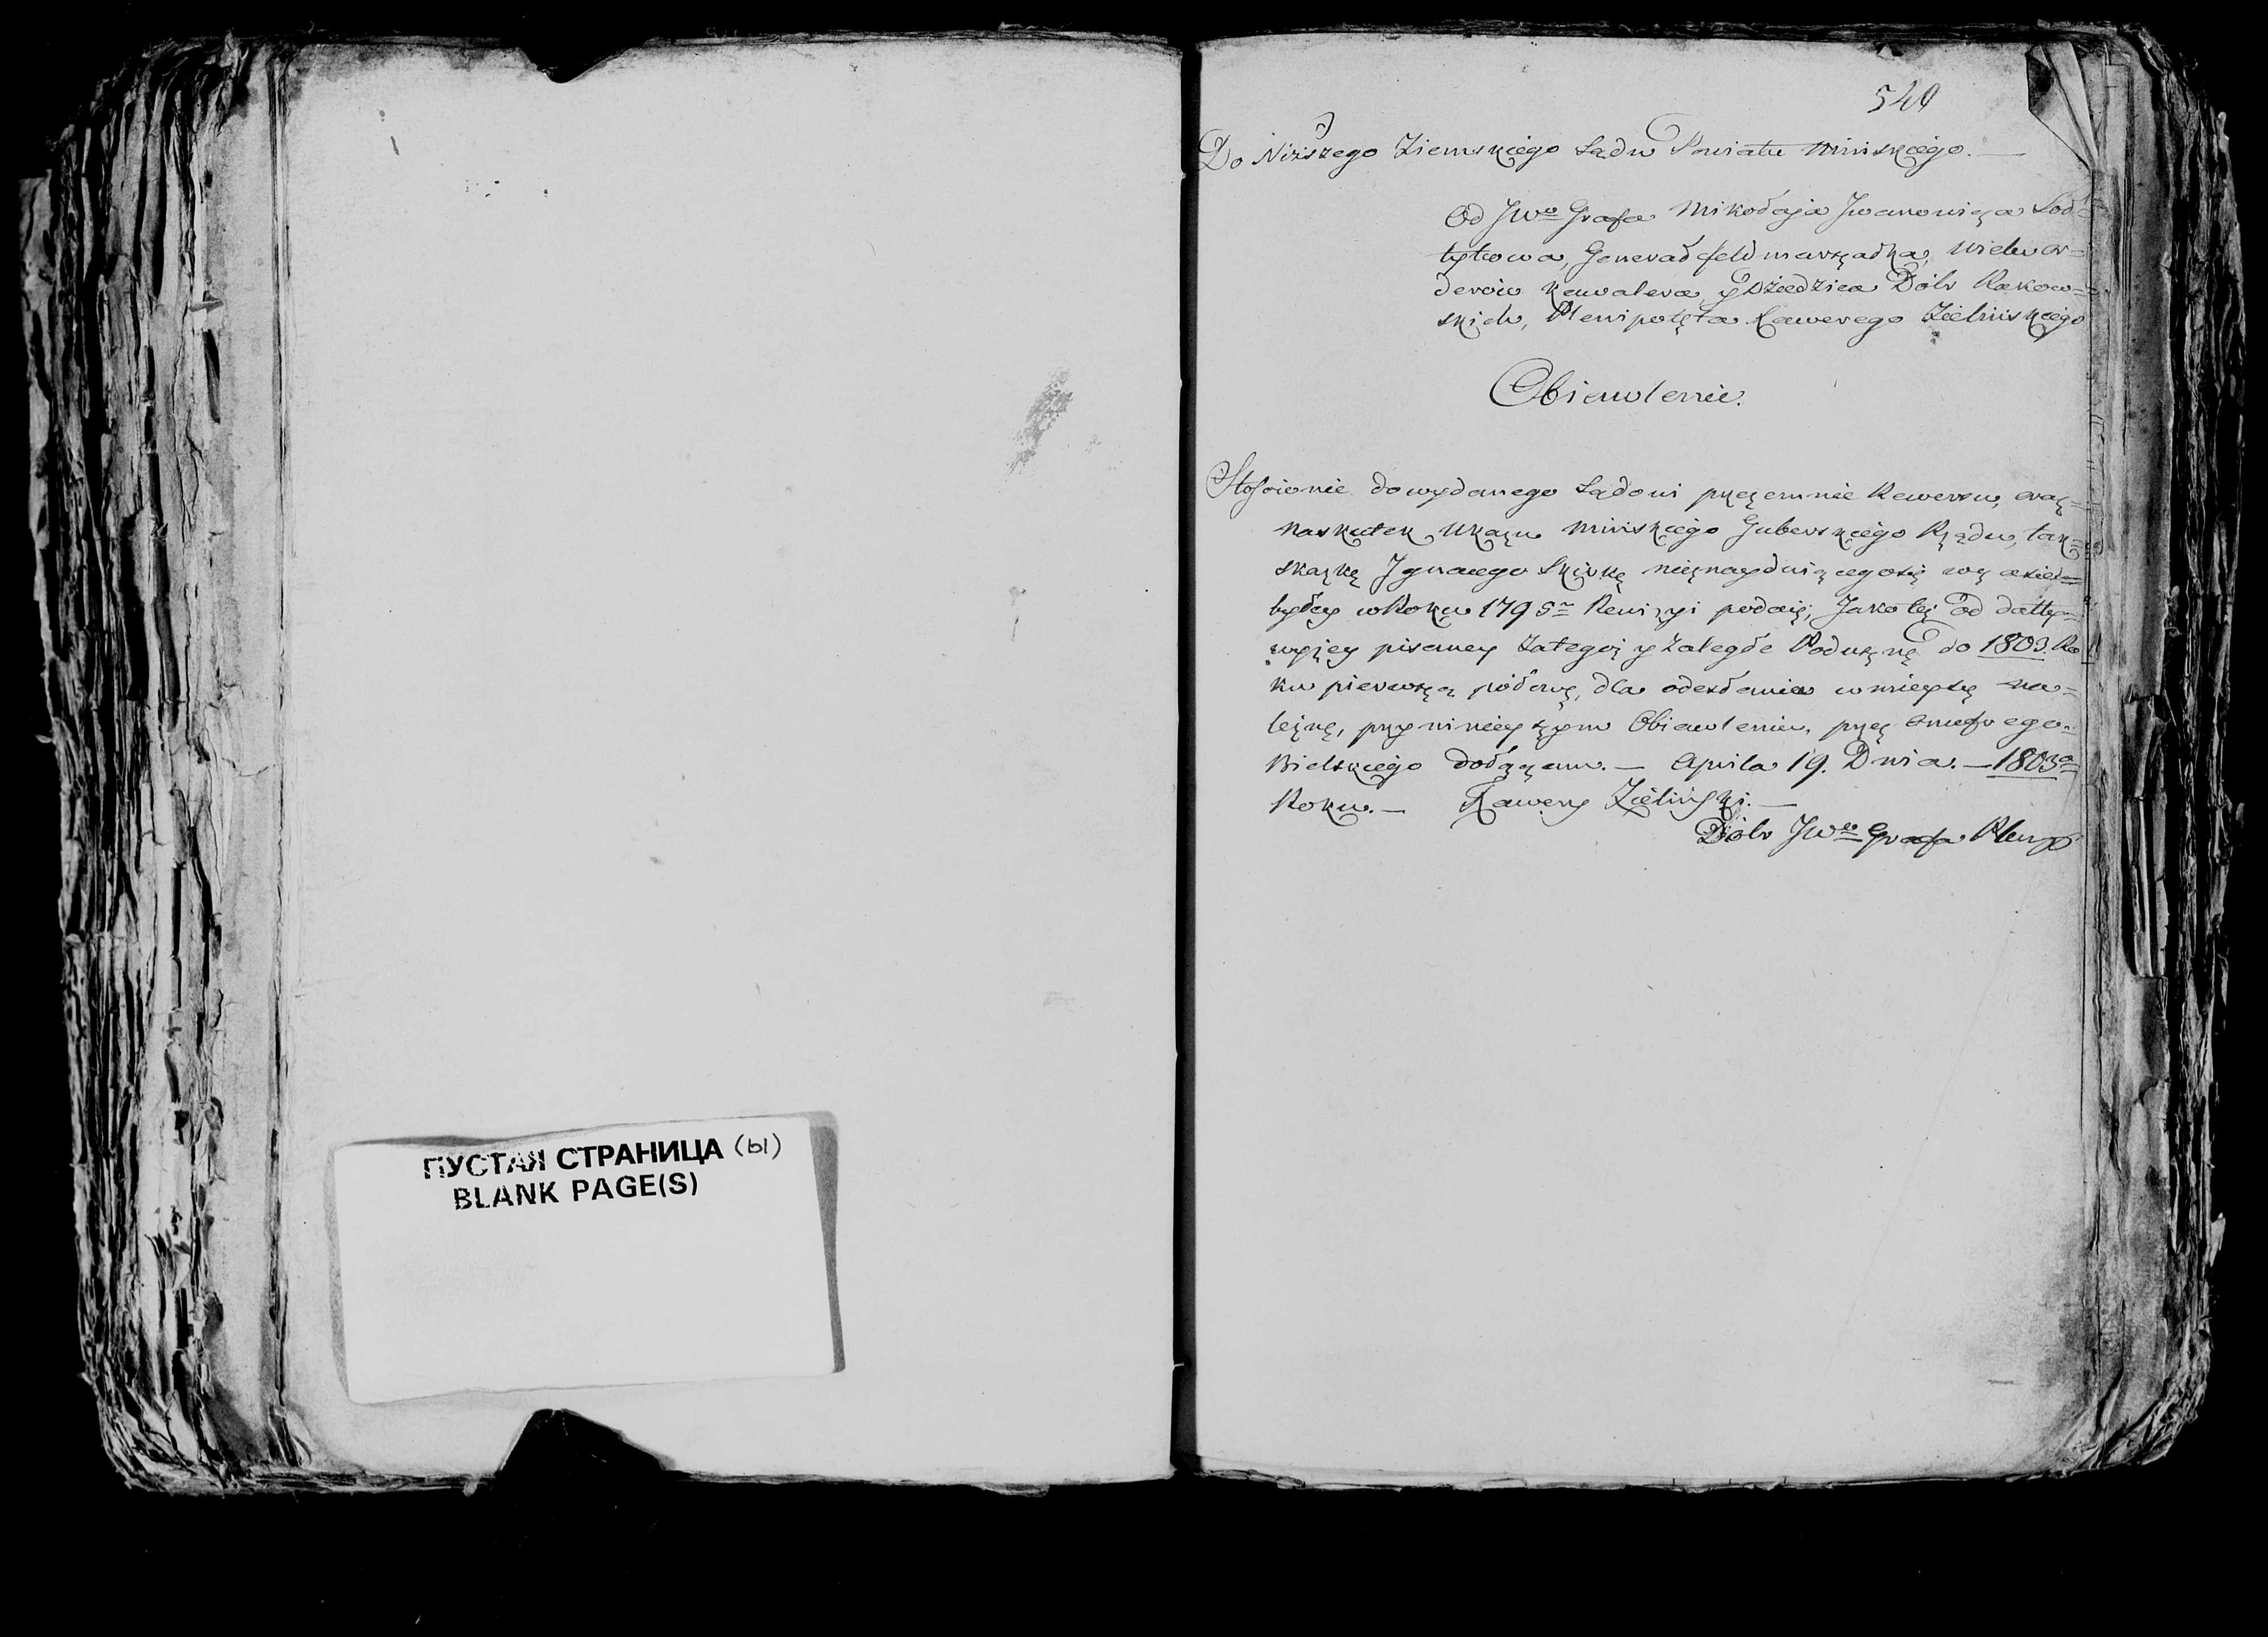 ПУСТАЯ СТРАНИЦА (ы)
BLANK PAGE(S)
540
Do Niższego Ziemskiego Sądu Powiatu Minskiego. —
Od JWo Grafa Mikołaja Jwanowicza Soł=
tykowa, Generał feldmarszałka, wielu or=
derów kawalera, y Dziedzica Dóbr Rakow=
skich, Plenipotęta Xawerego Zielinskiego
Obiawlenie.
Stosownie do wydanego Sądowi przezemnie Rewersu, oraz
na skutek Ukazu Minskiego Guberskiego Rządu, tak
skazkę Jgnacego nieznayduiącego się
byłey w Roku 1795 Rewizyi podaię, Jako też od datty
wyżey pisaney Zategoż y Zaległe Poduszne do 1803. Ro
ku pierwszą połowę, dla odesłania w mieysce na=
leżne, przy ninieyszym Obiawleniu, przez
Bielskiego dołączam. — Aprila 19. Dnia. — 1803o
Roku. — Xawery Zieliński. —
Dóbr JWo Grafa Plenp